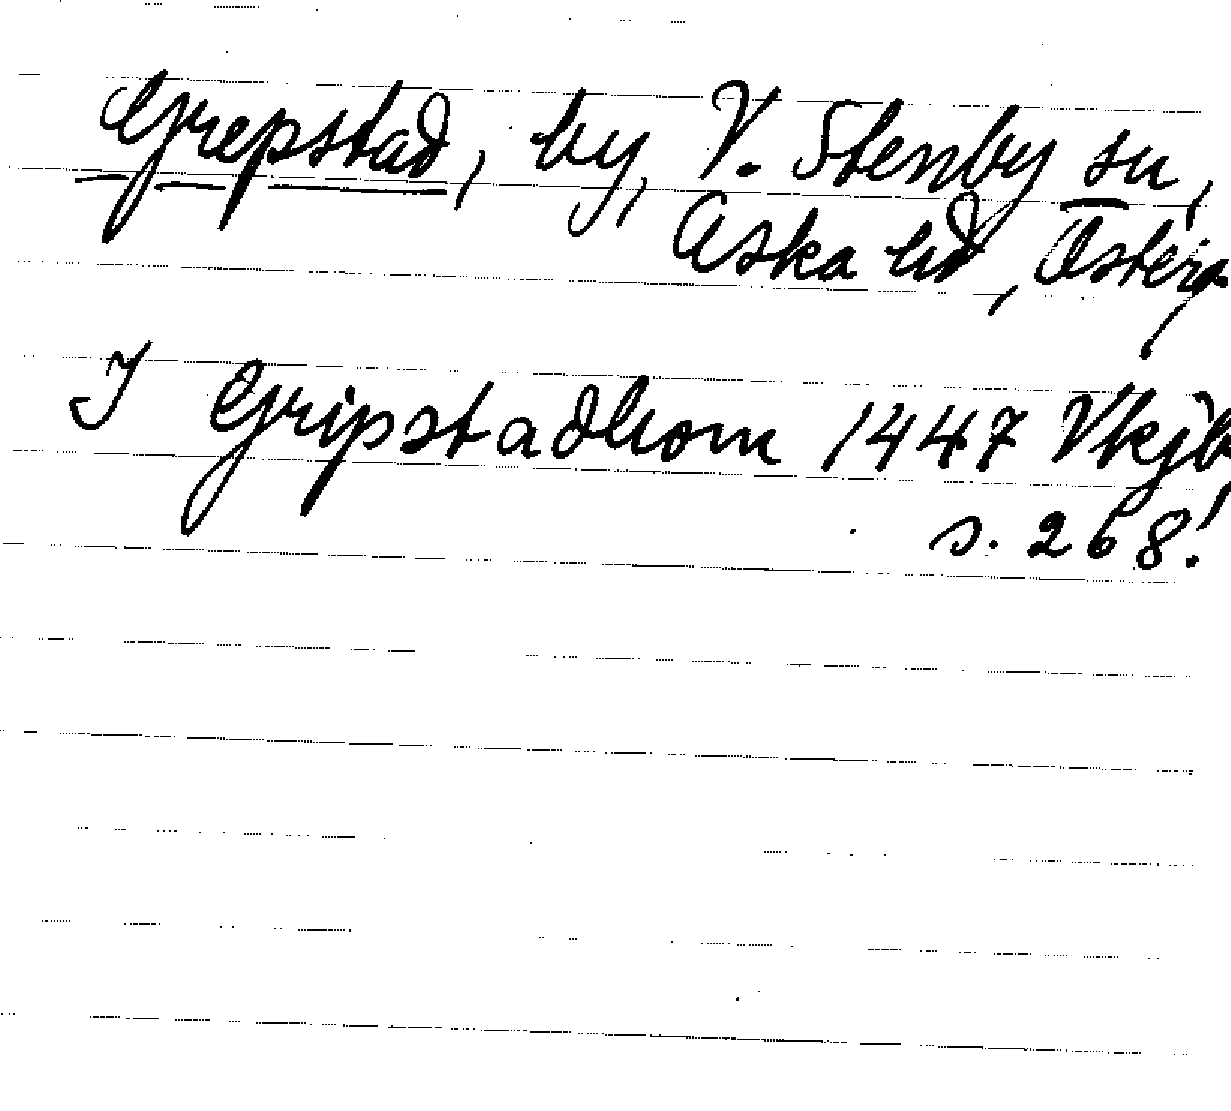 Grepstad, by, V. Stenby sn,
Aska hd, Österg
I Gripstadhom 1447 Vkjb
s. 268!